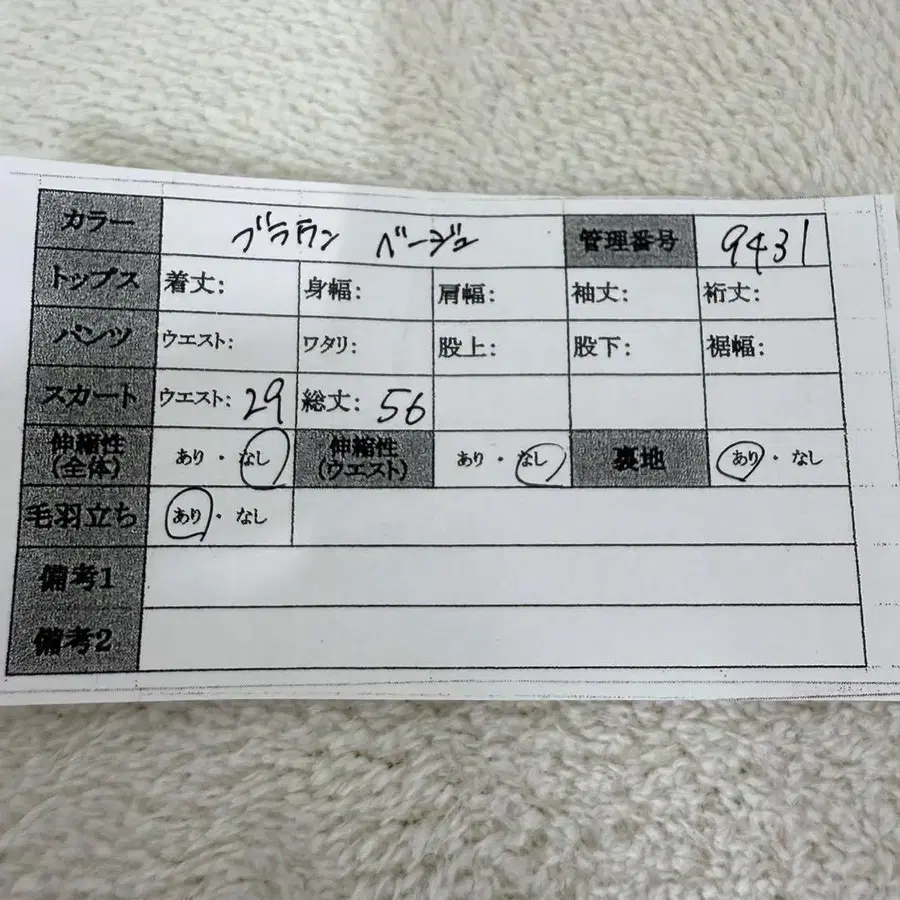 カラー ブラウン ベージュ 管理番号 9431
トップス 着丈: 身幅: 肩幅: 袖丈: 裄丈:
パンツ ウエスト: ワタリ: 股上: 股下: 裾幅:
スカート ウエスト: 29 総丈: 56
伸縮性(全体) あり・なし 伸縮性(ウエスト) あり・なし 裏地 あり・なし
毛羽立ち あり・なし
備考1
備考2